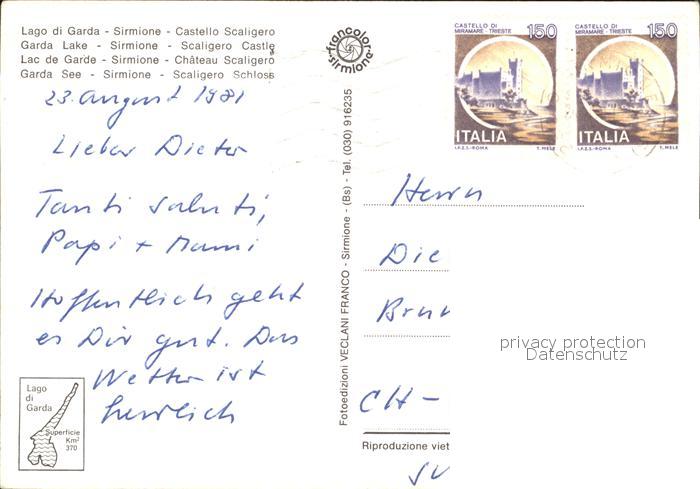 Lago di Garda - Sirmione - Castello Scaligero
Garda Lake - Sirmione - Scaligero Castle
Lac de Garde - Sirmione - Château Scaligero
Garda See - Sirmione - Scaligero Schloss
23. august 1981
Lieber Dieter
Tanti saluti,
Papi + Mami
Hoffentlich geht
es Dir gut. Das
Wetter ist
herrlich
Lago
di
Garda
Superficie
Km²
370
francolor
sirmione
Fotoedizioni VECLANI FRANCO - Sirmione - (Bs) - Tel. (030) 916235
CASTELLO DI
MIRAMARE - TRIESTE 150
ITALIA
I.P.Z.S. - ROMA T. MELE
CASTELLO DI
MIRAMARE - TRIESTE 150
ITALIA
I.P.Z.S. - ROMA T. MELE
Herrn
Die
Brun
privacy protection
Datenschutz
CH -
Riproduzione viet